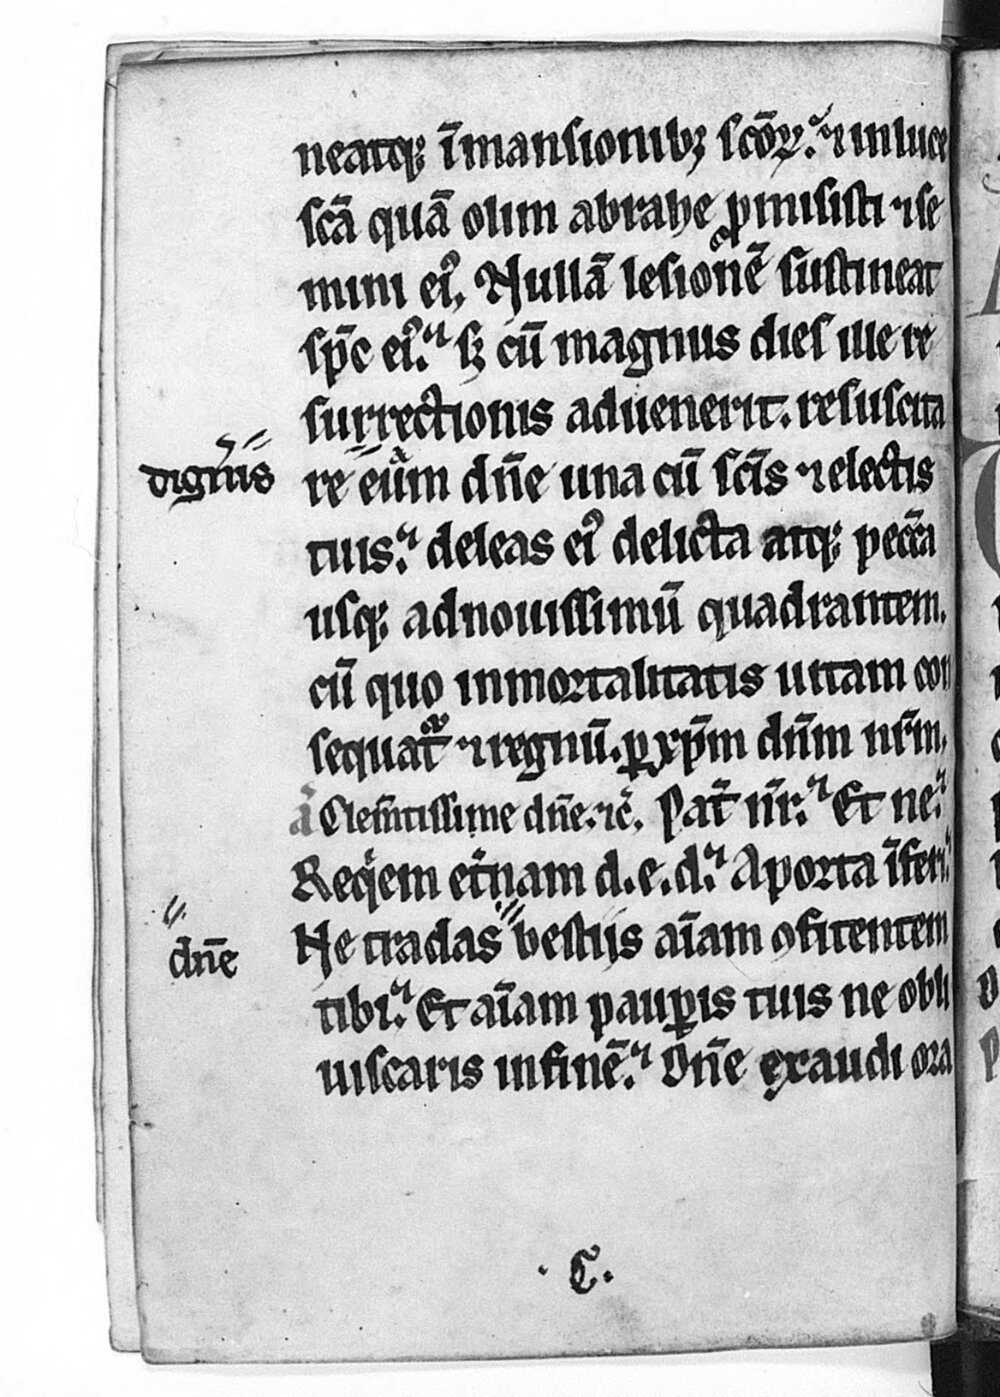 neatq; īmansionib; scōꝝ. ⁊ inluce
scā quā olim abrahe ꝓmisisti ⁊ se
mini ei᾽, Nullā lesionē sustineat
sp̄c ei᾽. sꝫ cū magnus dies ille re
surrectionis aduenerit. resuscita
dignīs
re eūm dn̄e una cū sc̄is ⁊ electis
tuis. deleas ei᾽ delicta atq; pecc̄a
usq; adnouissimū quadrantem.
cū quo inmortalitatis uitam con
sequat᷑ ⁊ regnū. ꝑ xp̄m dn̄m nr̄m.
ā Clem̄tissime dn̄e. ⁊c̄. Pat̄ nr̄. Et ne.
Reqͥem et̄nam d. e. d. A porta īferi.
dn̄e
Ne tradas bestijs aīam ꝯfitentem
tibi. Et aīam pauꝑis tuis ne obli
uiscaris infinē. Dn̄e exaudi ora
. C .